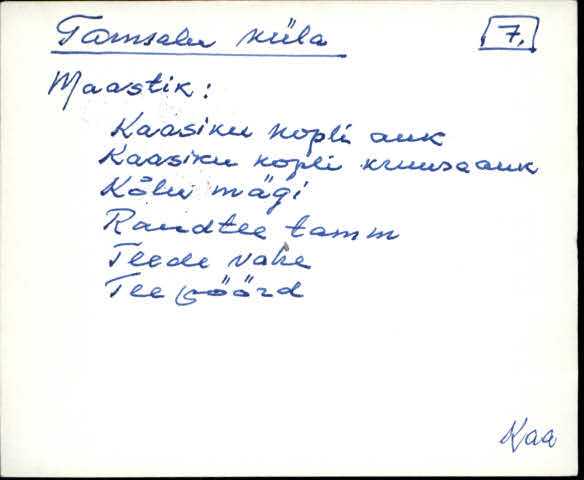 Tamsalu küla 7.
Maastik:
Kaasiku kopli auk
Kaasiku kopli kruusaauk
Kõlu mägi
Raudtee tamm
Teede vahe
Tee pöörd
Kaa